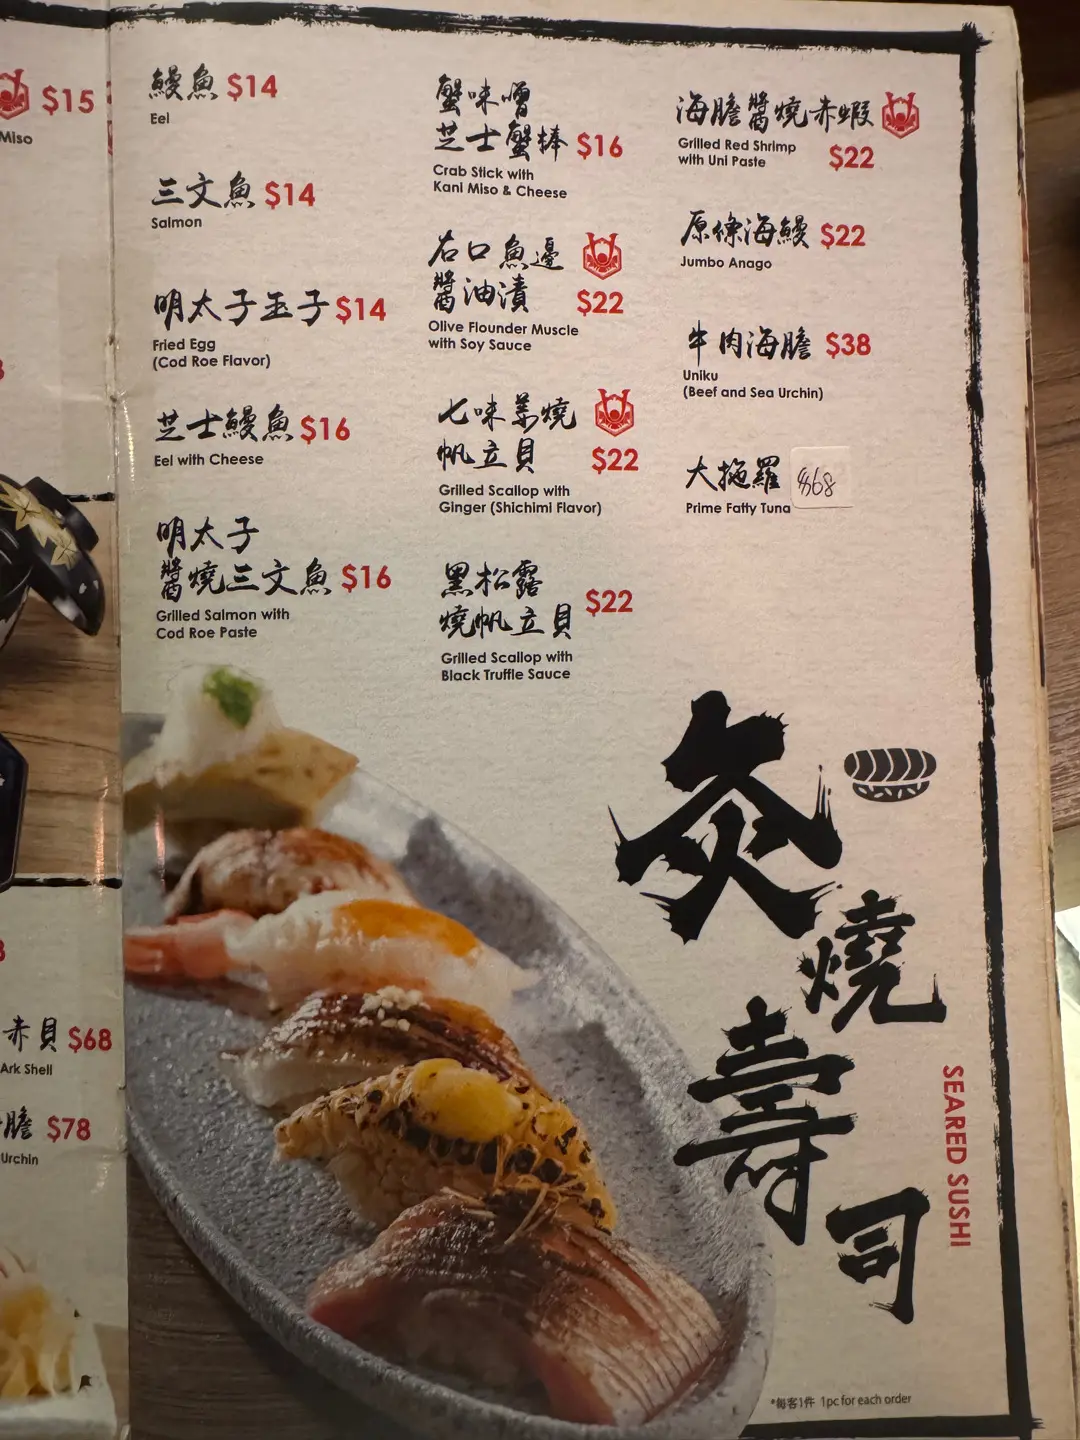 $15
Miso
赤貝 $68
Ark Shell
膽 $78
Urchin
鰻魚 $14
Eel
三文魚 $14
Salmon
明太子玉子 $14
Fried Egg
(Cod Roe Flavor)
芝士鰻魚 $16
Eel with Cheese
明太子
醬燒三文魚 $16
Grilled Salmon with
Cod Roe Paste
蟹味噌
芝士蟹棒 $16
Crab Stick with
Kani Miso & Cheese
左口魚邊
醬油漬 $22
Olive Flounder Muscle
with Soy Sauce
七味薑燒
帆立貝 $22
Grilled Scallop with
Ginger (Shichimi Flavor)
黑松露
燒帆立貝 $22
Grilled Scallop with
Black Truffle Sauce
海膽醬燒赤蝦
Grilled Red Shrimp
with Uni Paste $22
原條海鰻 $22
Jumbo Anago
牛肉海膽 $38
Uniku
(Beef and Sea Urchin)
大拖羅 $68
Prime Fatty Tuna
炙燒壽司
SEARED SUSHI
*每客1件 1pc for each order